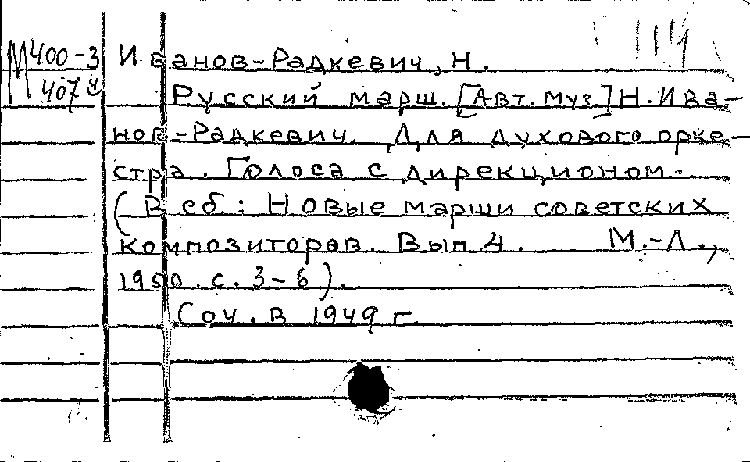 М400-3 Иванов-Радкевич, Н.
407 Русский марш. [Авт. муз.] Н. Ива-
нов-Радкевич. Для духового орке-
стра. Голоса с дирекционом.
(В сб: Новые марши советских
композиторов. Вып 4. М.-Л.,
1950. с. 3-6).
Соч. в 1949 г.